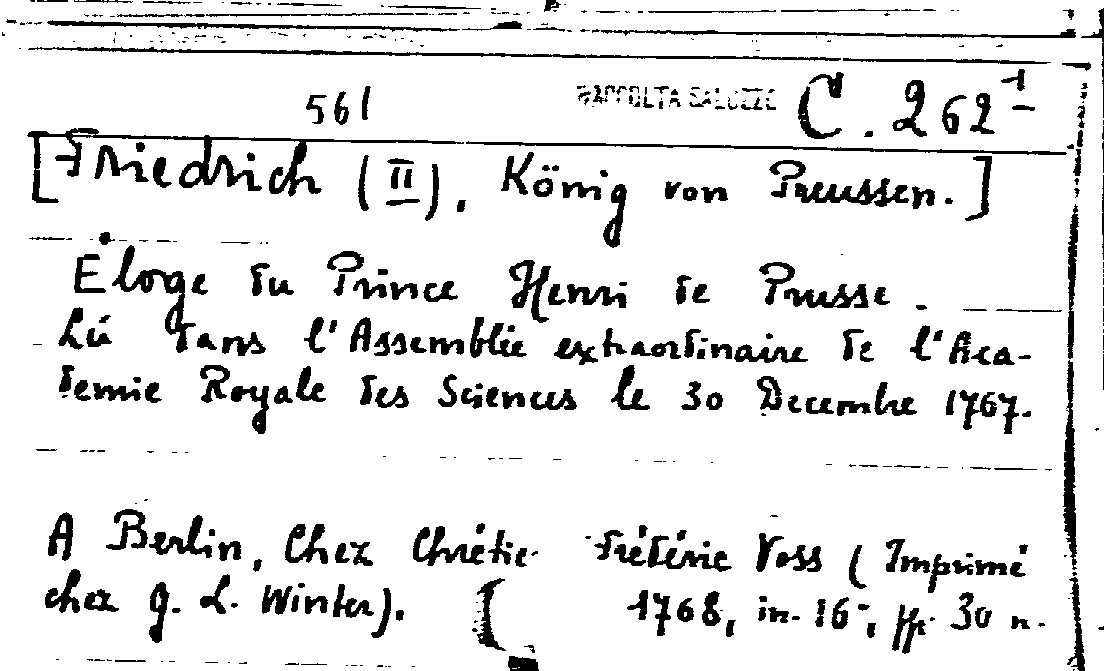 561 RACCOLTA SALUZZO C. 262-1
[Friedrich (II), König von Preussen.]
Éloge du Prince Henri de Prusse.
Lú dans l'Assemblée extraordinaire de l'Aca-
demie Royale des Sciences le 30 Decembre 1767.
A Berlin, Chez Chrétie Frédéric Voss (Imprimé
chez G. L. Winter). 1768, in-16°, pp. 30 n.